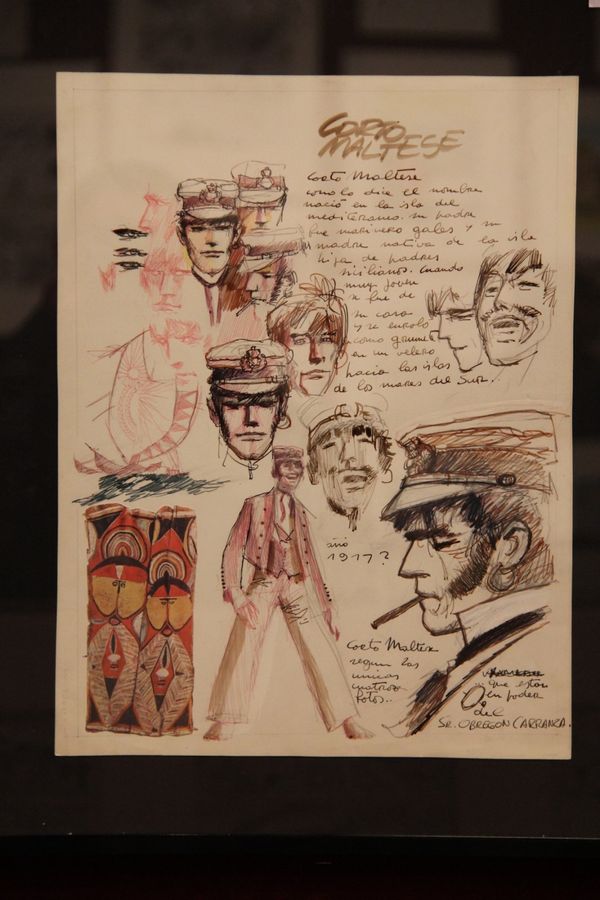 CORTO
MALTESE
Corto Maltese
como lo dice el nombre
nació en la isla del
mediterraneo. su padre
fue marinero gales y su
madre nativa de la isla
hija de padres
sisilianos. cuando
muy joven
se fue de
su casa
y se enrolo
como grumete
en un velero
hacia las islas
de los mares del Sur..
año
1917?
Corto Maltese
segun las
unicas
cuatros
fotos..
que estan
en poder
del
SR. OBREGON CARRANZA.